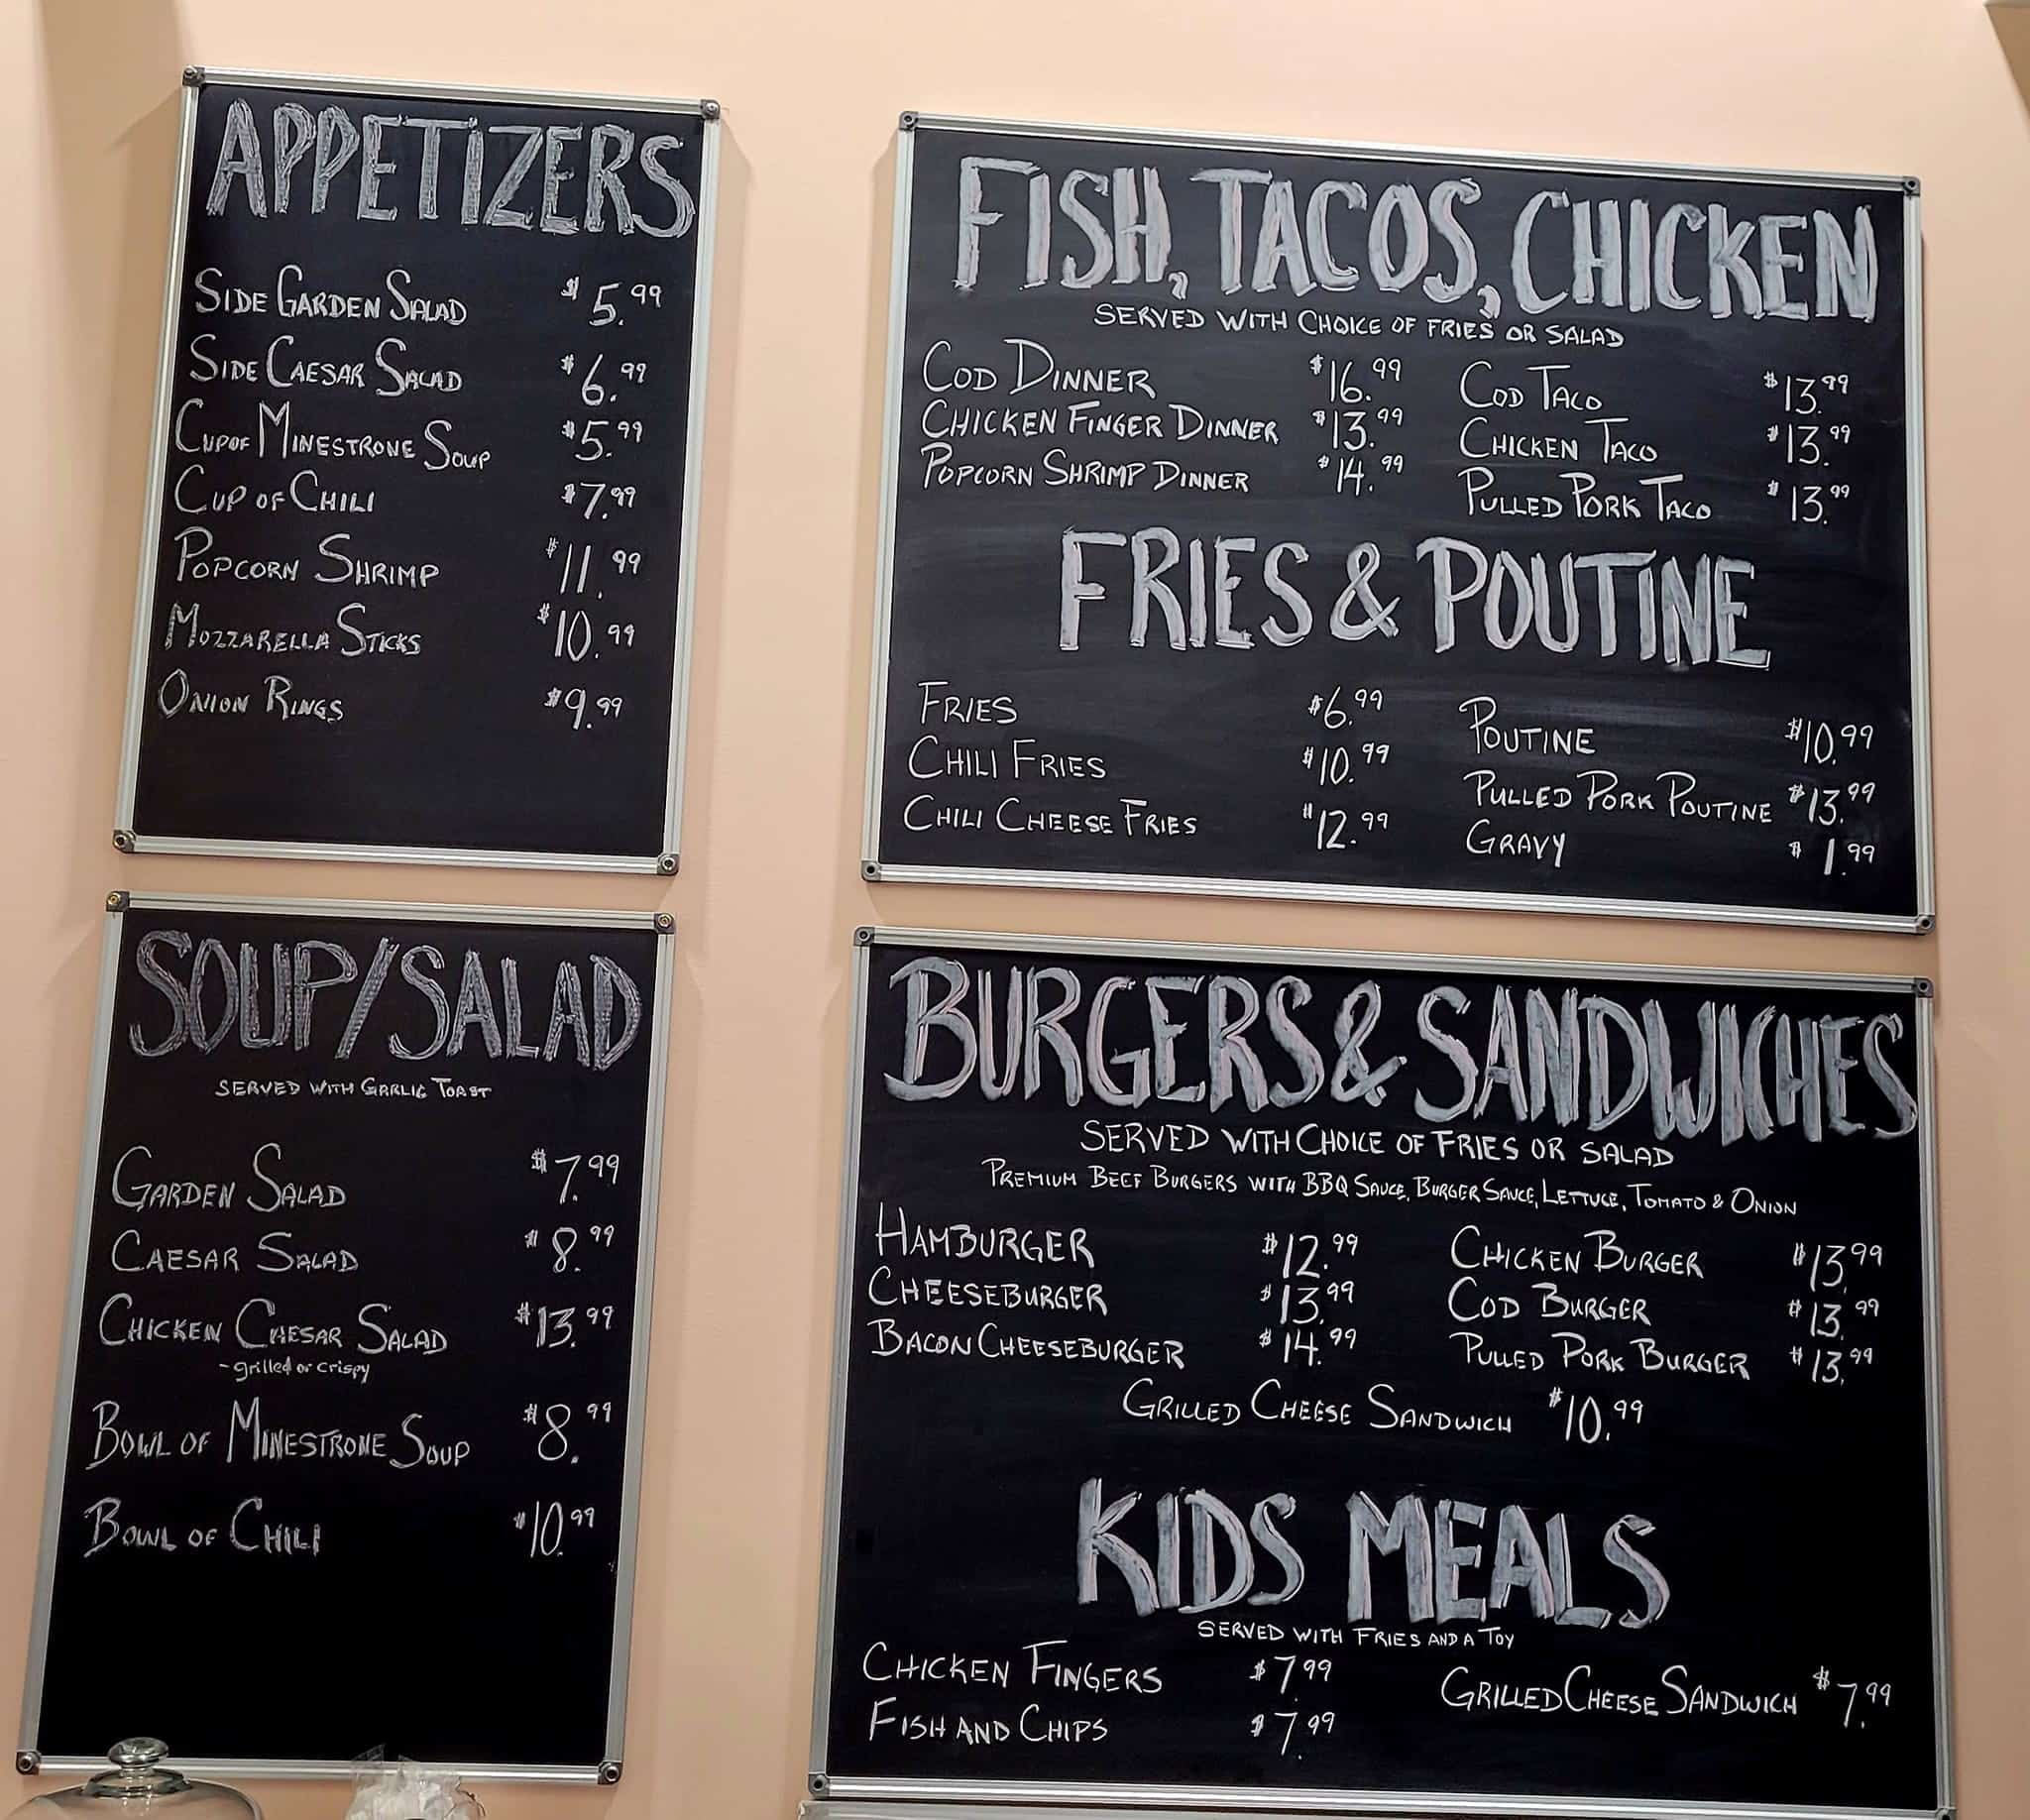 APPETIZERS
SIDE GARDEN SALAD $5.99
SIDE CAESAR SALAD $6.99
CUP OF MINESTRONE SOUP $5.99
CUP OF CHILI $7.99
POPCORN SHRIMP $11.99
MOZZARELLA STICKS $10.99
ONION RINGS $9.99
SOUP/SALAD
SERVED WITH GARLIC TOAST
GARDEN SALAD $7.99
CAESAR SALAD $8.99
CHICKEN CAESAR SALAD $13.99
-grilled or crispy
BOWL OF MINESTRONE SOUP $8.99
BOWL OF CHILI $10.99
FISH, TACOS, CHICKEN
SERVED WITH CHOICE OF FRIES OR SALAD
COD DINNER $16.99 COD TACO $13.99
CHICKEN FINGER DINNER $13.99 CHICKEN TACO $13.99
POPCORN SHRIMP DINNER $14.99 PULLED PORK TACO $13.99
FRIES & POUTINE
FRIES $6.99 POUTINE $10.99
CHILI FRIES $10.99 PULLED PORK POUTINE $13.99
CHILI CHEESE FRIES $12.99 GRAVY $1.99
BURGERS & SANDWICHES
SERVED WITH CHOICE OF FRIES OR SALAD
PREMIUM BEEF BURGERS WITH BBQ SAUCE, BURGER SAUCE, LETTUCE, TOMATO & ONION
HAMBURGER $12.99 CHICKEN BURGER $13.99
CHEESEBURGER $13.99 COD BURGER $13.99
BACON CHEESEBURGER $14.99 PULLED PORK BURGER $13.99
GRILLED CHEESE SANDWICH $10.99
KIDS MEALS
SERVED WITH FRIES AND A TOY
CHICKEN FINGERS $7.99 GRILLED CHEESE SANDWICH $7.99
FISH AND CHIPS $7.99